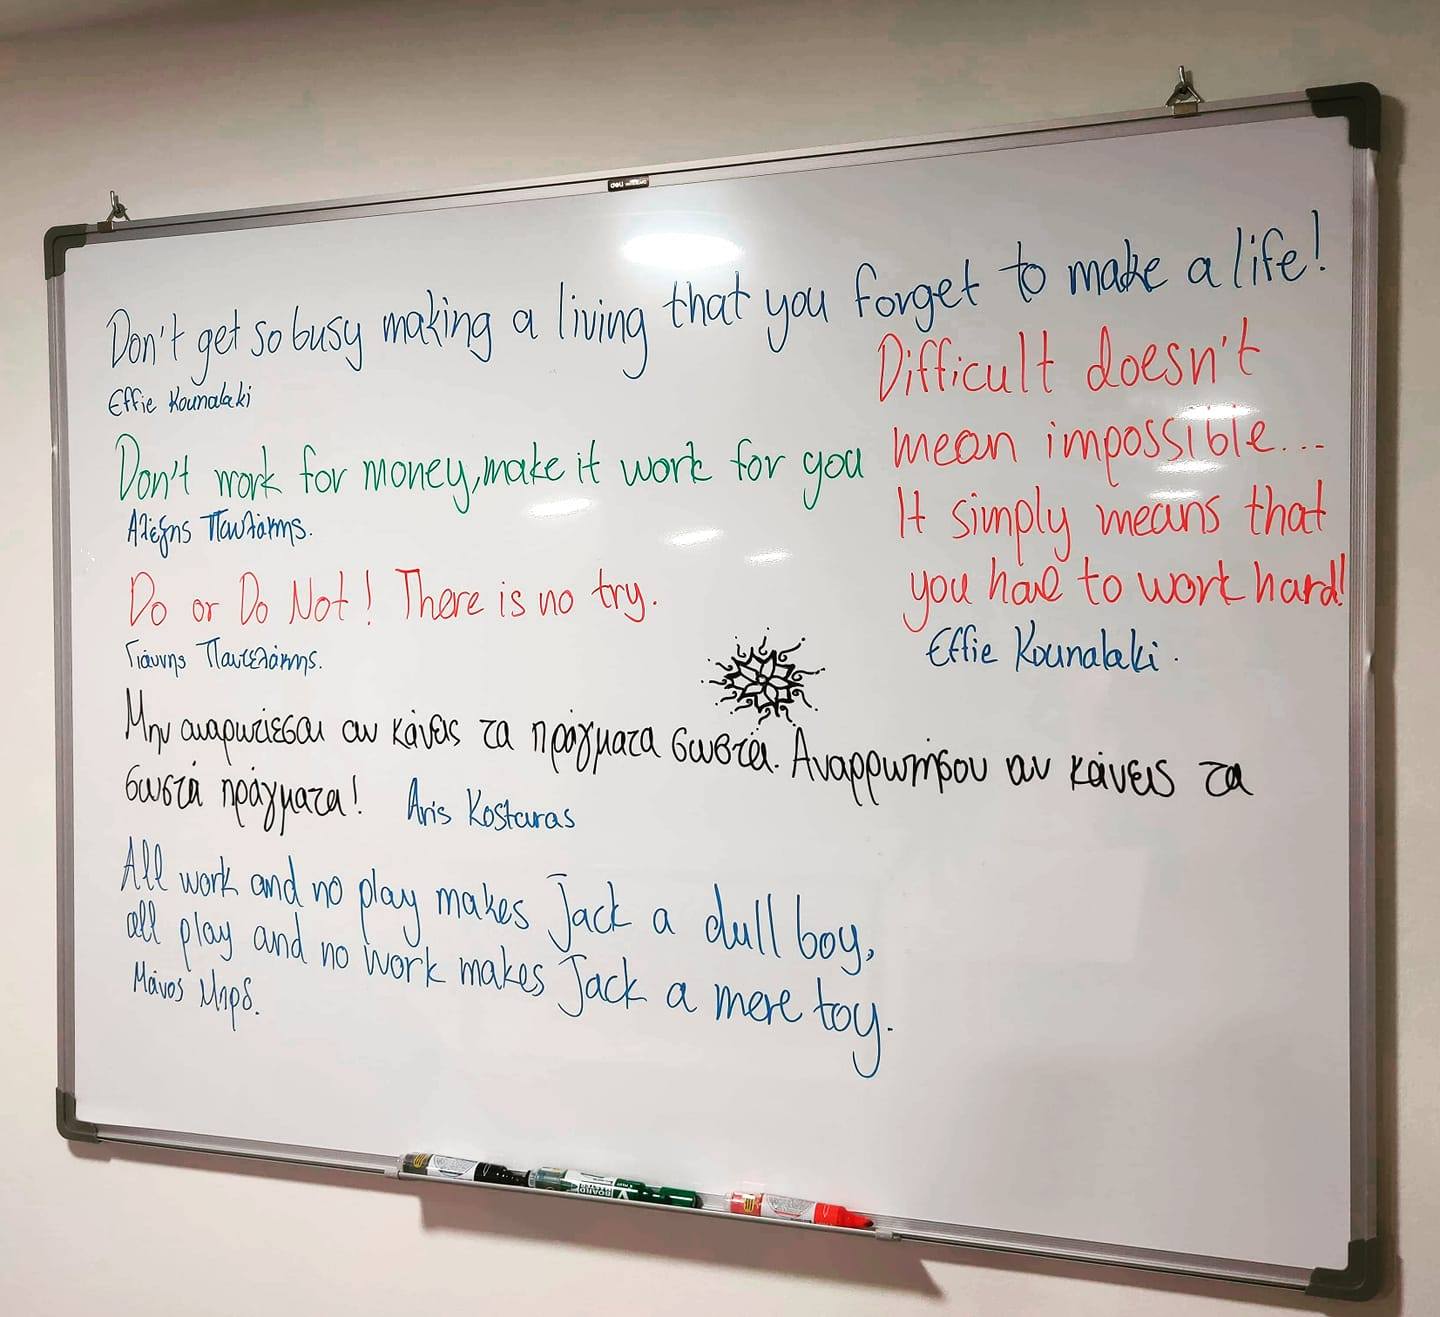 deli
Don't get so busy making a living that you forget to make a life!
Effie Kounalaki
Don't work for money, make it work for you
Αλέξης Παυλάκης.
Do or Do Not! There is no try.
Γιάννης Παντελάκης.
Difficult doesn't
mean impossible...
It simply means that
you have to work hard!
Effie Kounalaki.
Μην αναρωτιέσαι αν κάνεις τα πράγματα σωστά. Αναρρωτήσου αν κάνεις τα
σωστά πράγματα! Aris Kostaras
All work and no play makes Jack a dull boy,
all play and no work makes Jack a mere toy.
Μάνος Μπρδ.
BOARD